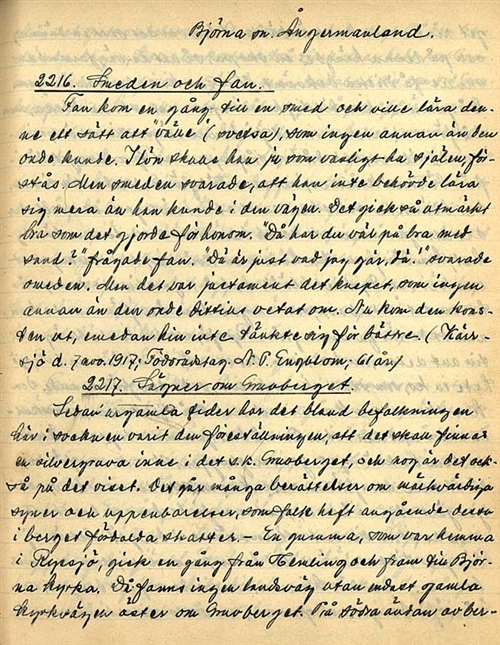 Björna sn. Ångermanland.
2216. Smeden och fan.
Fan kom en gång till en smed och ville lära den-
ne ett sätt att "välle" (svetsa), som ingen annan än den
onde kunde. I lön skulle han ju som vanligt ha själen, för-
stås. Men smeden svarade, att han inte behövde lära
sig mera än han kunde i den vägen. Det gick så utmärkt
bra som det gjorde för honom. "Då har du väl på bra med
sand?" frågade fan. "Då är just vad jag gör, då!" svarade
smeden. Men det var jactament det knepet, som ingen
annan än den onde dittills vetat om. Nu kom den kons-
ten ut, emedan hin inte tänkte sig för bättre. (Kärr-
sjö d. 7 nov. 1917; Födorådstag. N. P. Engblom, 61 år)
2217. Sägner om Gruoberget.
Sedan urgamla tider har det bland befolkningen
här i socknen varit den föreställningen, att det skall finnas
en silvergruva inne i det s.k. Gruoberget, och nog är det ock-
så på det viset. Det går många berättelser om märkvärdiga
syner och uppenbarelser, som folk haft angående dessa
i berget fördolda skatter. – En gumma, som var hemma
i Flyesjö, gick en gång från Hemling och fram till Björ-
na kyrka. Då fanns ingen landsväg utan endast gamla
kyrkvägen öster om Gruoberget. På södra ändan av ber-